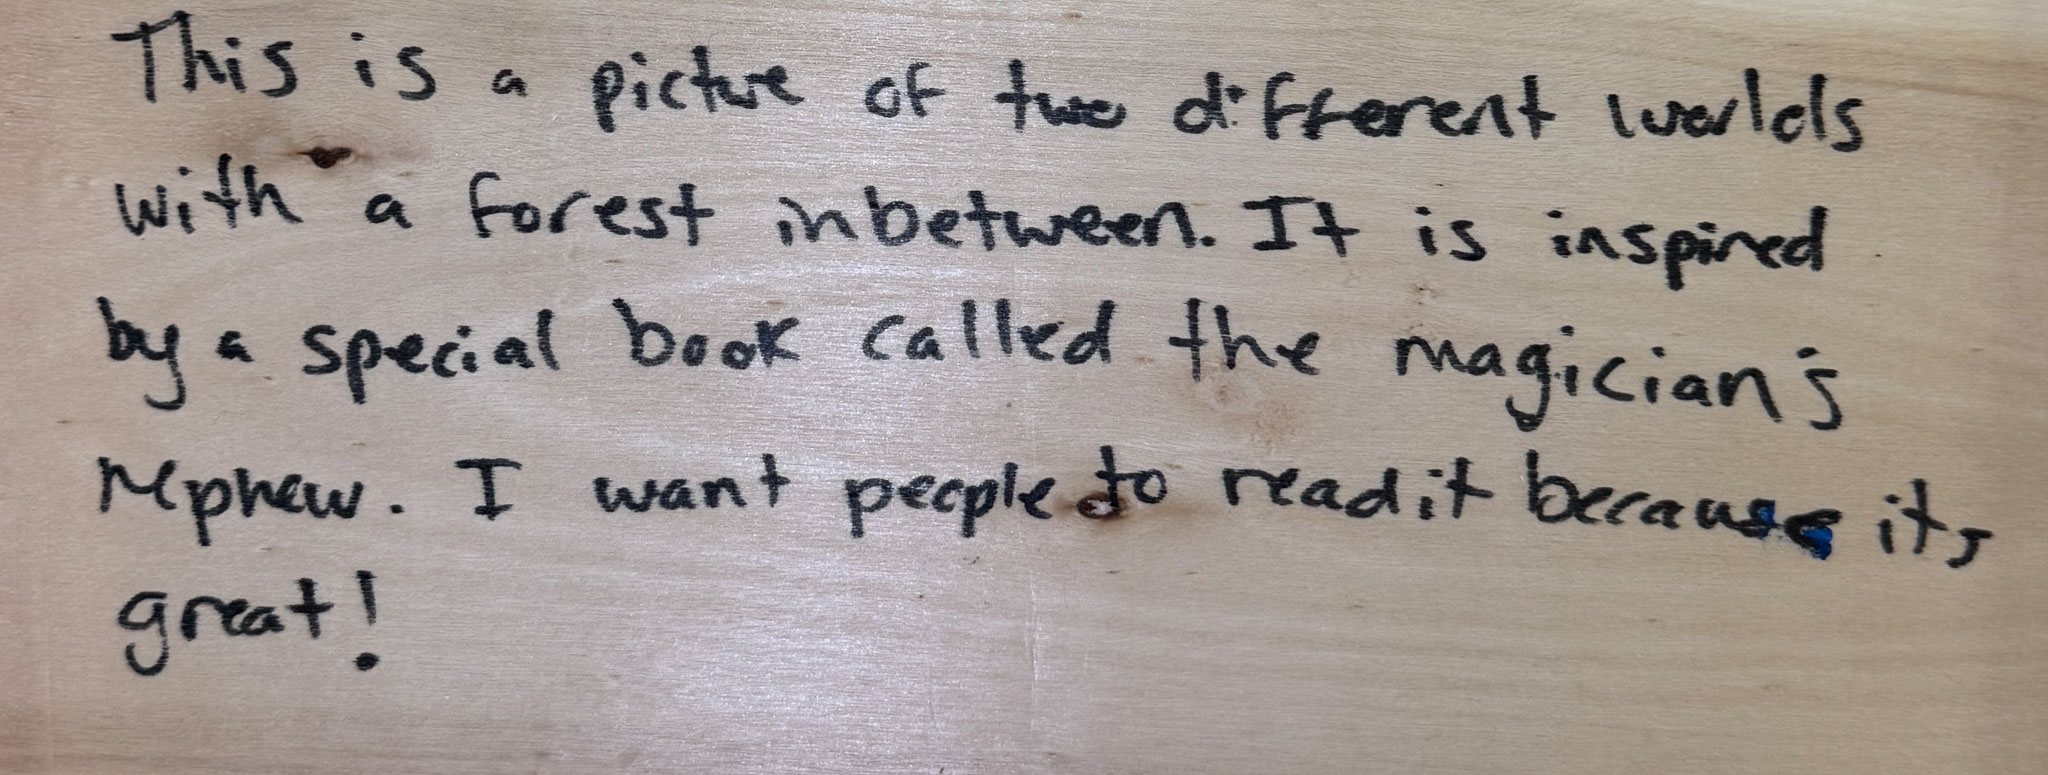 This is a picture of two different worlds
with a forest inbetween. It is inspired
by a special book called the magician's
nephew. I want people to read it because its
great!